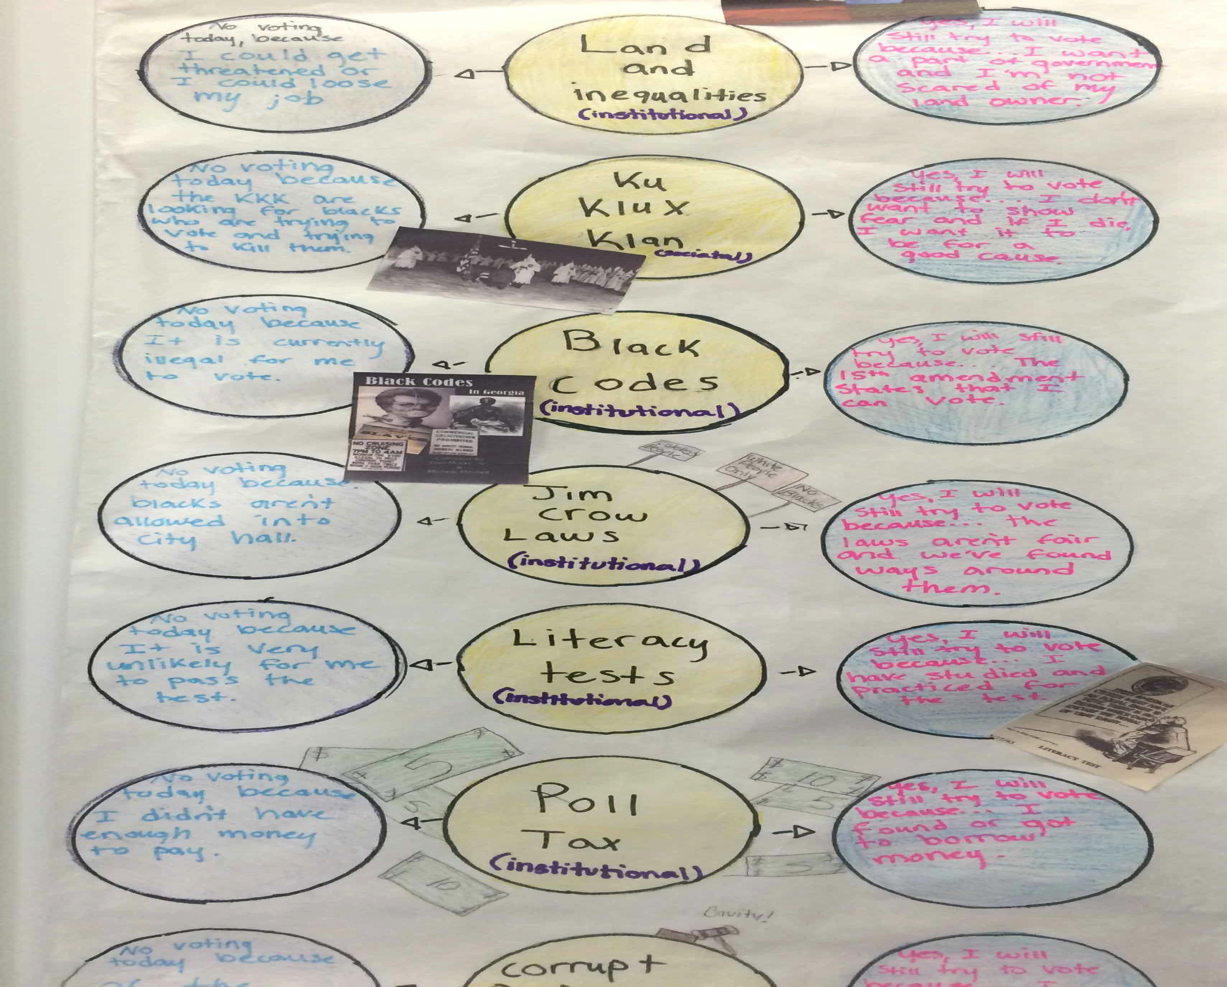 No voting
today, because
I could get
threatened or
I could loose
my job
Land
and
inequalities
(institutional)
yes, I will
still try to vote
because... I want
a part of government
and I'm not
scared of my
land owner.
No voting
today because
the KKK are
looking for blacks
who are trying to
vote and trying
to kill them.
Ku
Klux
Klan
(societal)
yes, I will
still try to vote
because... I don't
want to show
fear and if I die,
I want it to
be for a
good cause.
No voting
today because
It is currently
illegal for me
to vote.
Black
Codes
(institutional)
yes, I will still
try to vote
because... The
15th amendment
states that I
can vote.
Black Codes
In Georgia
NO CRUISING
ZONE
7PM TO 4AM
No voting
today because
blacks aren't
allowed into
city hall.
Jim
crow
Laws
(institutional)
White
People
Only
No
Blacks
yes, I will
still try to vote
because... the
laws aren't fair
and we've found
ways around
them.
No voting
today because
It is very
unlikely for me
to pass the
test.
Literacy
tests
(institutional)
yes, I will
still try to vote
because... I
have studied and
practiced for
the test
LITERACY TEST
No voting
today because
I didn't have
enough money
to pay.
$ 5 $
$ 5
$ 10 $
Poll
Tax
(institutional)
$ 10 $
$ 5
$ 5 $
yes, I will
still try to vote
because... I
found or got
to borrow
money.
Cavity!
No voting
today because
of the
corrupt
yes, I will
still try to vote
because... I